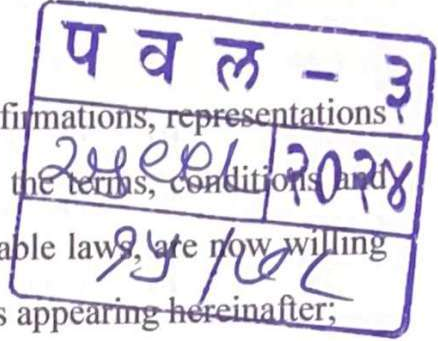 प व ल - ३
firmations, representations
२०२४
the terms, conditions and
able laws, are now willing
s appearing hereinafter;